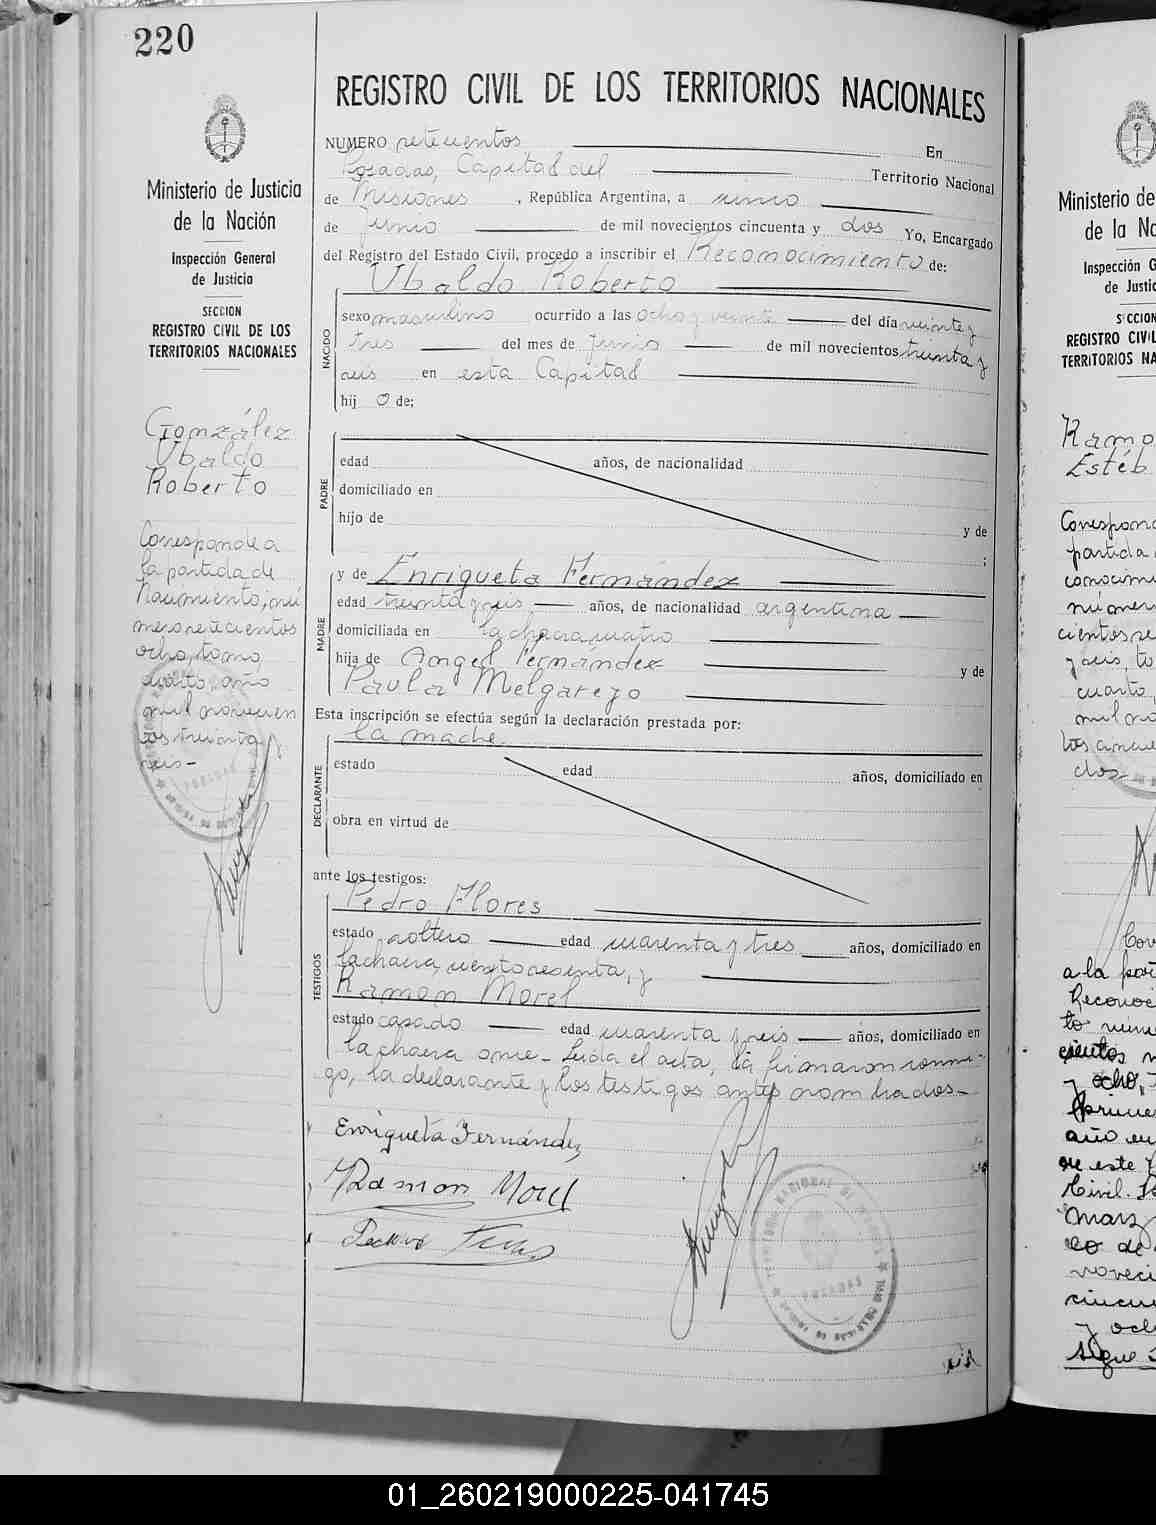 220
REGISTRO CIVIL DE LOS TERRITORIOS NACIONALES
Ministerio de Justicia
de la Nación
Inspección General
de Justicia
SECCION
REGISTRO CIVIL DE LOS
TERRITORIOS NACIONALES
González
Ubaldo
Roberto
Corresponde a
la partida de
Nacimiento, nú
mero setecientos
ocho, tomo
cuarto, año
mil novecien
tos treinta y
seis-
NUMERO setecientos En
Posadas, Capital del Territorio Nacional
de Misiones, República Argentina, a cinco
de junio de mil novecientos cincuenta y dos Yo, Encargado
del Registro del Estado Civil, procedo a inscribir el Reconocimiento de:
Ubaldo Roberto
NACIDO
sexo masculino ocurrido a las ocho y veinte del día veinte y
tres del mes de junio de mil novecientos treinta y
seis en esta Capital
hij o de;
PADRE
edad años, de nacionalidad
domiciliado en
hijo de y de
;
MADRE
y de Enriqueta Fernández
edad treinta y seis años, de nacionalidad argentina
domiciliada en la chacra cuatro
hija de Angel Fernández y de
Paula Melgarejo
Esta inscripción se efectúa según la declaración prestada por:
la madre.
DECLARANTE
estado edad años, domiciliado en
obra en virtud de
ante los testigos:
TESTIGOS
Pedro Flores
estado soltero edad cuarenta y tres años, domiciliado en
la chacra ciento sesenta, y
Ramon Morel
estado casado edad cuarenta y seis años, domiciliado en
la chacra once- Leída el acta, la firmaron conmi-
go, la declarante y los testigos antes nombrados-
Enriqueta Fernández
Ramon Morel
TERRITORIO NACIONAL DE MISIONES
POSADAS
Ministerio de
de la Na
Inspección G
de Justic
SECCION
REGISTRO CIVIL
TERRITORIOS NA
Ramo
Estéb
Correspond
partida
conocim
númer
cientos se
y seis, to
cuarto,
mil no
tos cincue
dos-
Cor
a la par
Reconoci
to núme
cientos
y ocho,
primer
año
de este
Civil.
Marz
co de
noveci
cincue
y och
Sigue
01_260219000225-041745